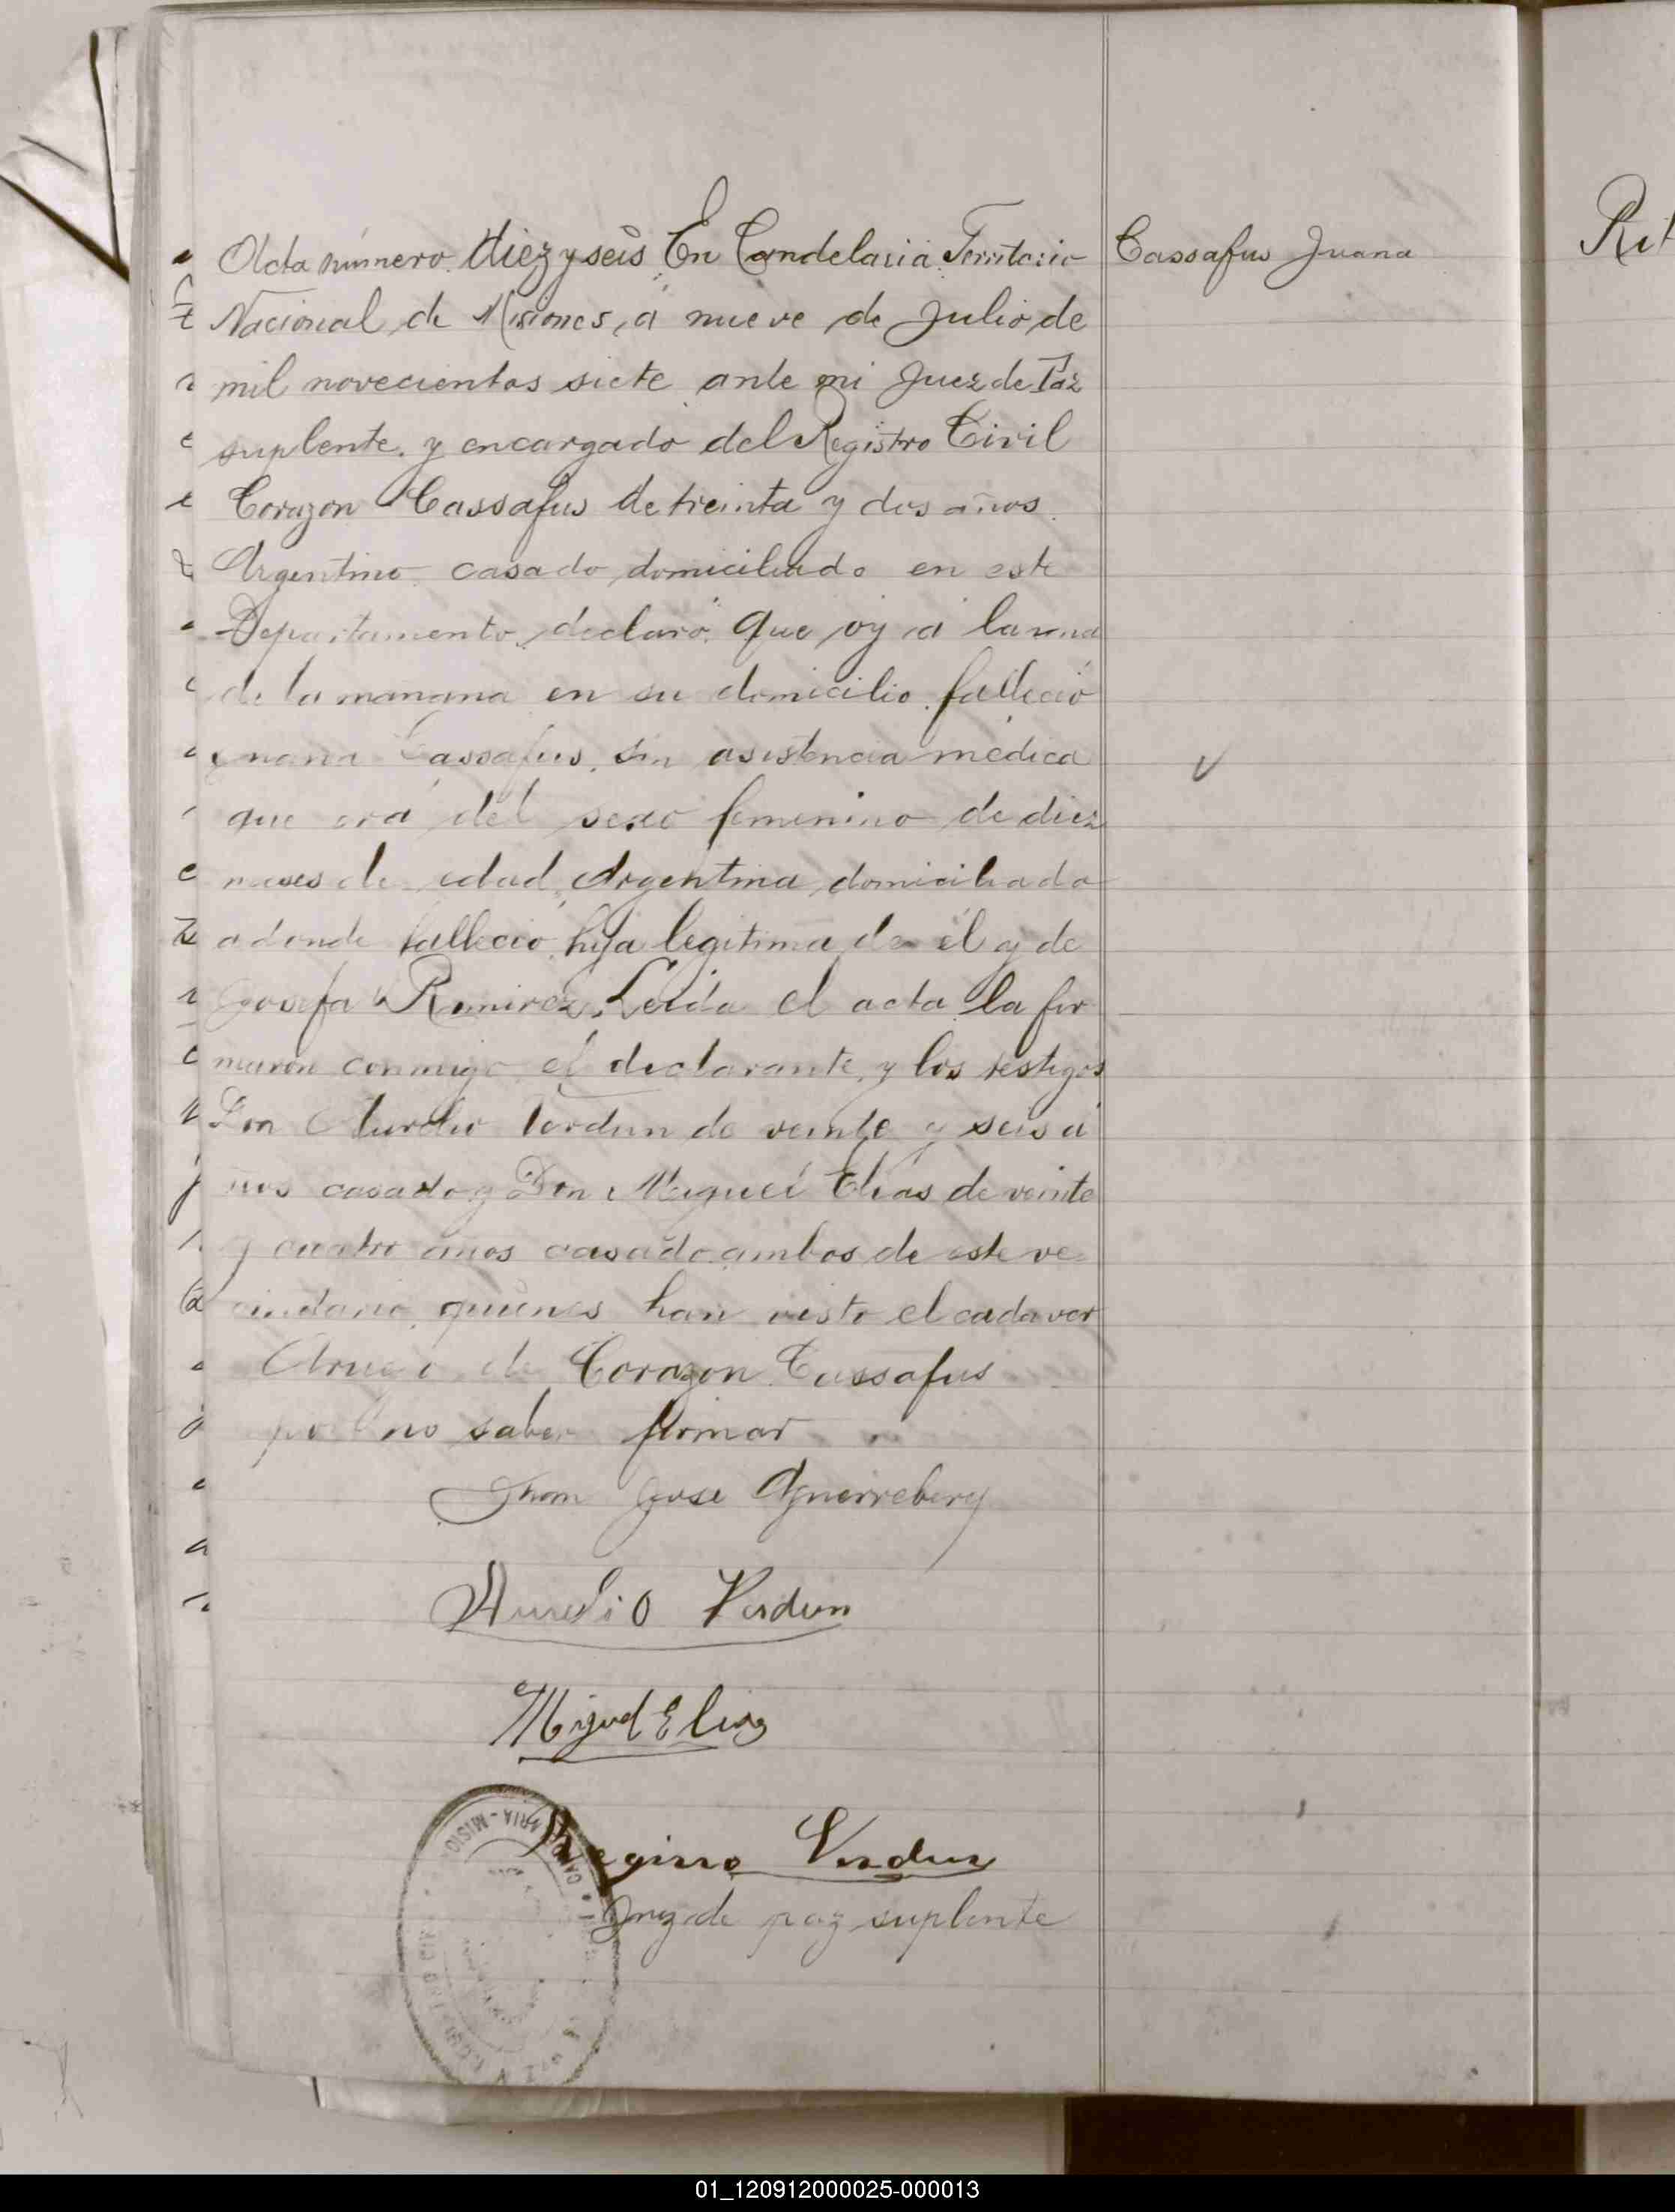 Acta número diez y seis En Candelaria Territorio
Cassafus Juana
Nacional de Misiones, á nueve de Julio de
mil novecientos siete ante mi Juez de Paz
suplente y encargado del Registro Civil
Corazon Cassafus de treinta y dos años
Argentino casado domiciliado en este
Departamento declaró que oy á la una
de la manana en su domicilio falleció
Juana Cassafus, sin asistencia médica
que era del sexo femenino de diez
meses de edad Argentina domiciliada
adonde falleció hija legitima de él y de
Josefa Ramirez, Leida el acta la fir
maron conmigo el declarante y los testigos
Don Aurelio Verdun de veinte y seis a
ños casado y Don Miguel Elías de veinte
y cuatro años casado ambos de este ve
cindario quienes han visto el cadaver
Aruego de Corazon Cassafus
por no saber firmar
Juan Jose Aguerreberry
Aurelio Verdun
Miguel Elias
Verdun
Juez de paz suplente
01_120912000025-000013